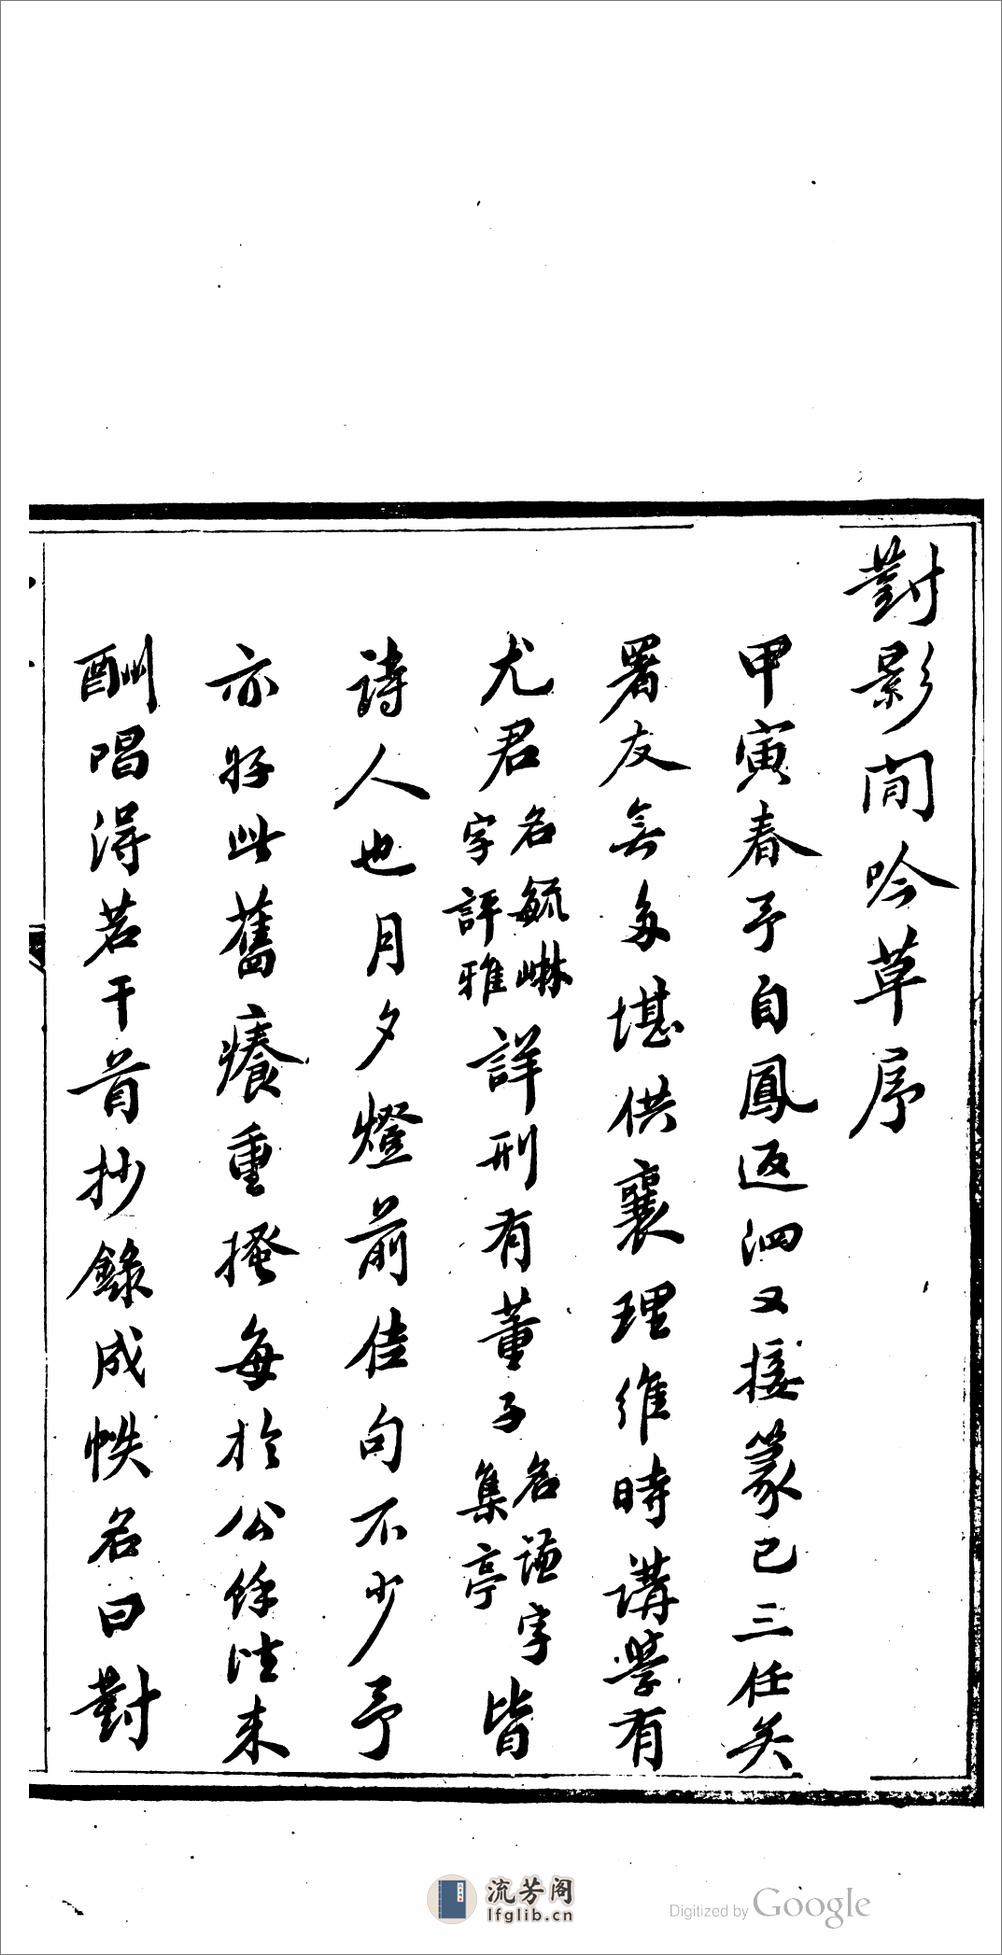 對影閒吟草序
甲寅春予自鳳返泗又接篆已三任矣
署友無多堪供襄理維時講學有
尤君名毓嶙字評雅詳刑有董子名謐字集亭皆
詩人也月夕燈前佳句不少予
亦好此舊癢重搔每於公餘往來
酬唱得若干首抄錄成帙名曰對
流芳阁
lfglib.cn
Digitized by Google